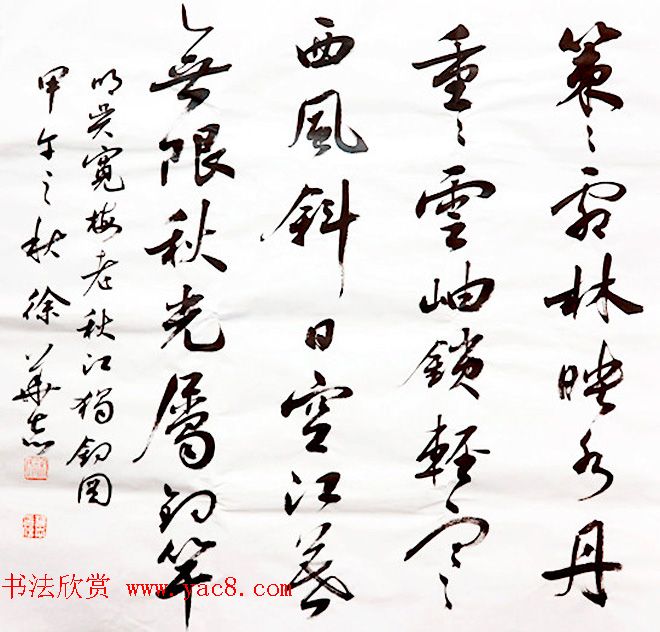 策〻霜林映水丹
重〻雲岫鎖輕寒
西風斜日空江暮
無限秋光屬釣竿
明吴寬梅老秋江獨釣図
甲午之秋徐華志
书法欣赏 www.yac8.com